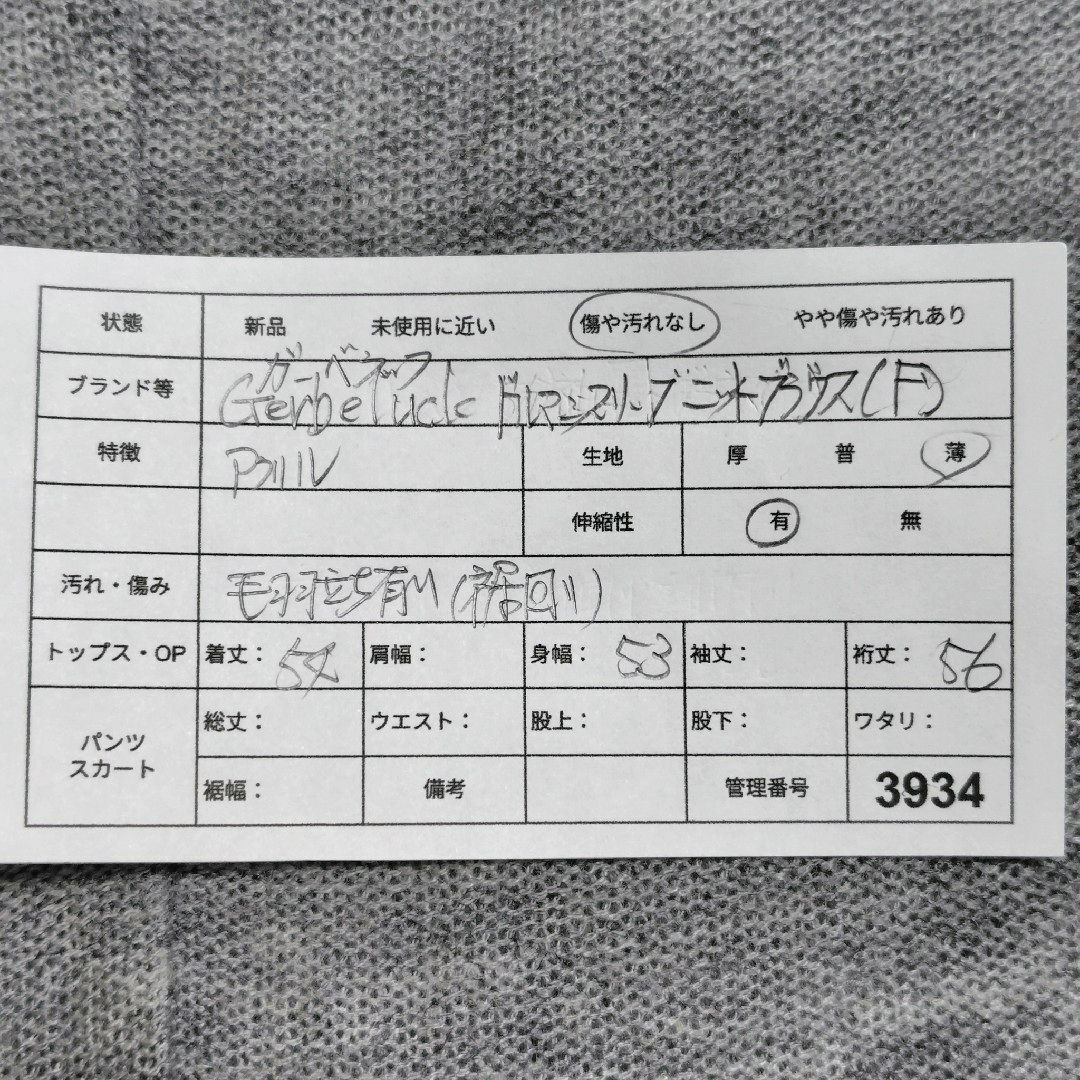 状態 新品 未使用に近い 傷や汚れなし やや傷や汚れあり
ガーベラック
ブランド等 Gerbeluck ドルマンスリーブニットブラウス(F)
特徴 生地 厚 普 薄
伸縮性 有 無
汚れ・傷み 毛羽立ち有り(裾回り)
トップス・OP 着丈: 54 肩幅: 身幅: 53 袖丈: 裄丈: 56
パンツ スカート 総丈: ウエスト: 股上: 股下: ワタリ:
裾幅: 備考 管理番号 3934